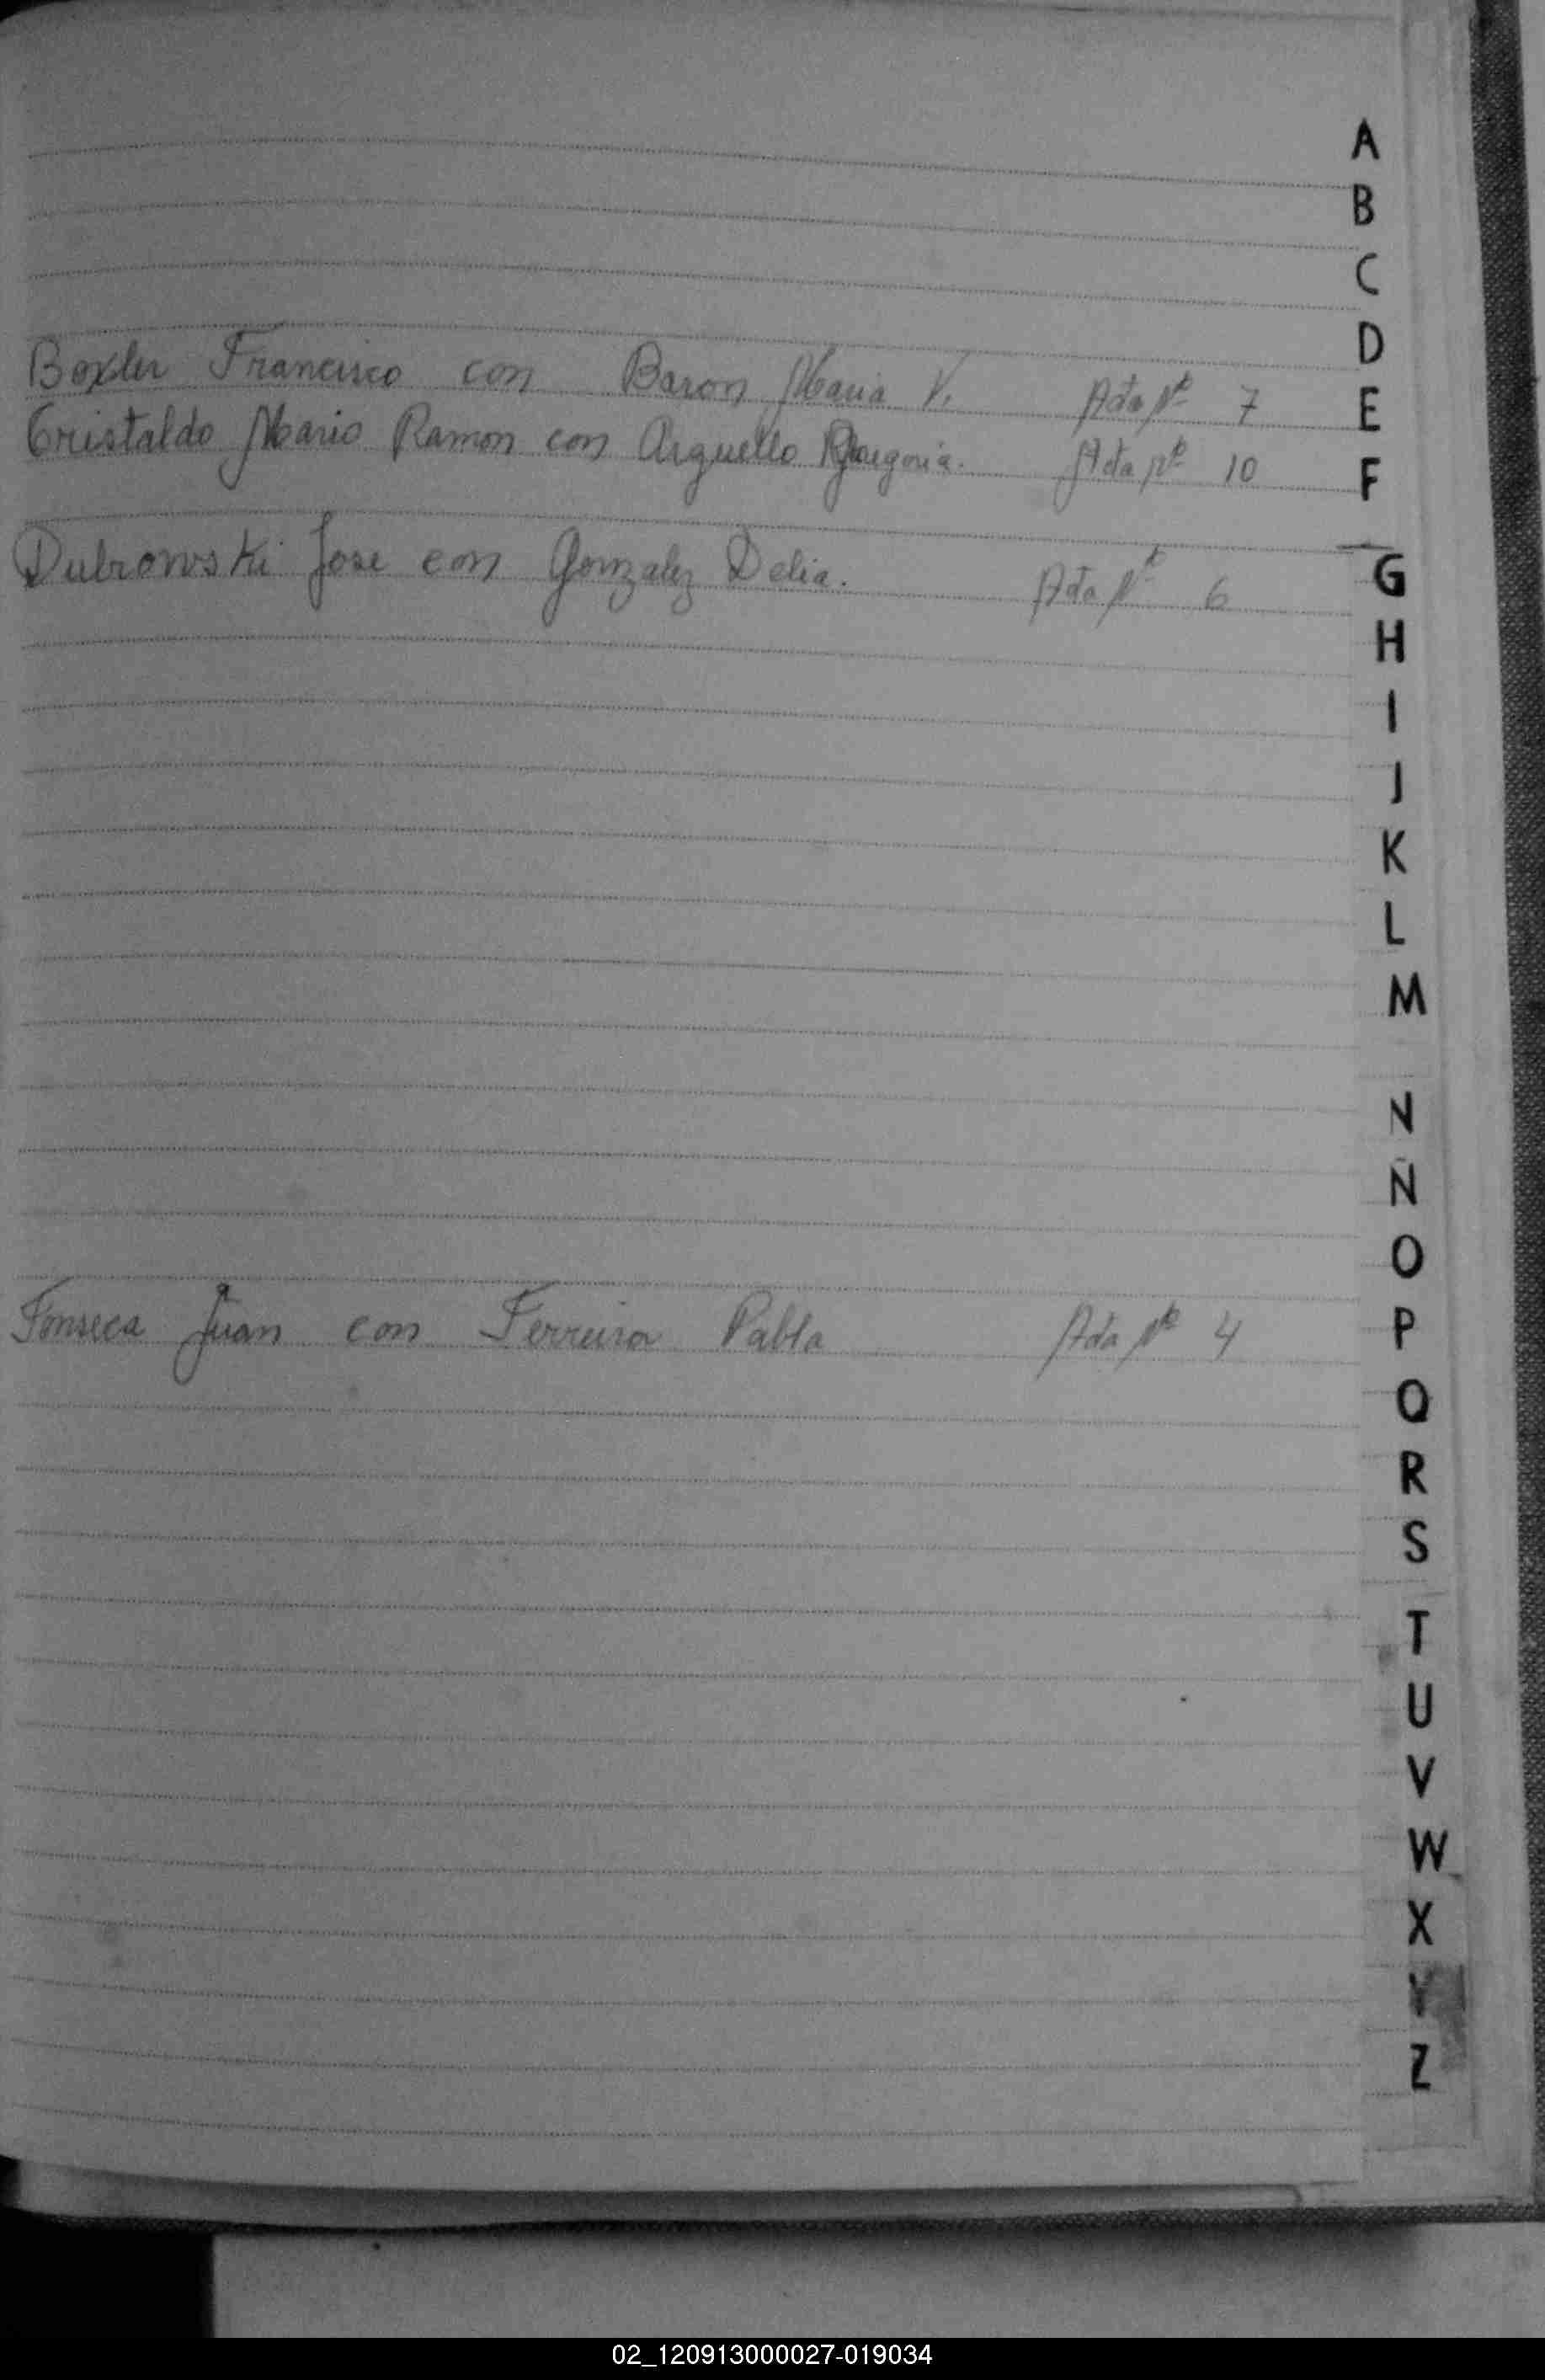 A
B
C
D
Boxler Francisco con Baron Maria V. Acta Nº 7
E
Cristaldo Mario Ramon con Arguello Gregoria. Acta Nº 10
F
Dubrowski Jose con Gonzalez Delia. Acta Nº 6
G
H
I
J
K
L
M
N
Ñ
O
Fonseca Juan con Ferreira Pabla Acta Nº 4
P
Q
R
S
T
U
V
W
X
Y
Z
02_120913000027-019034